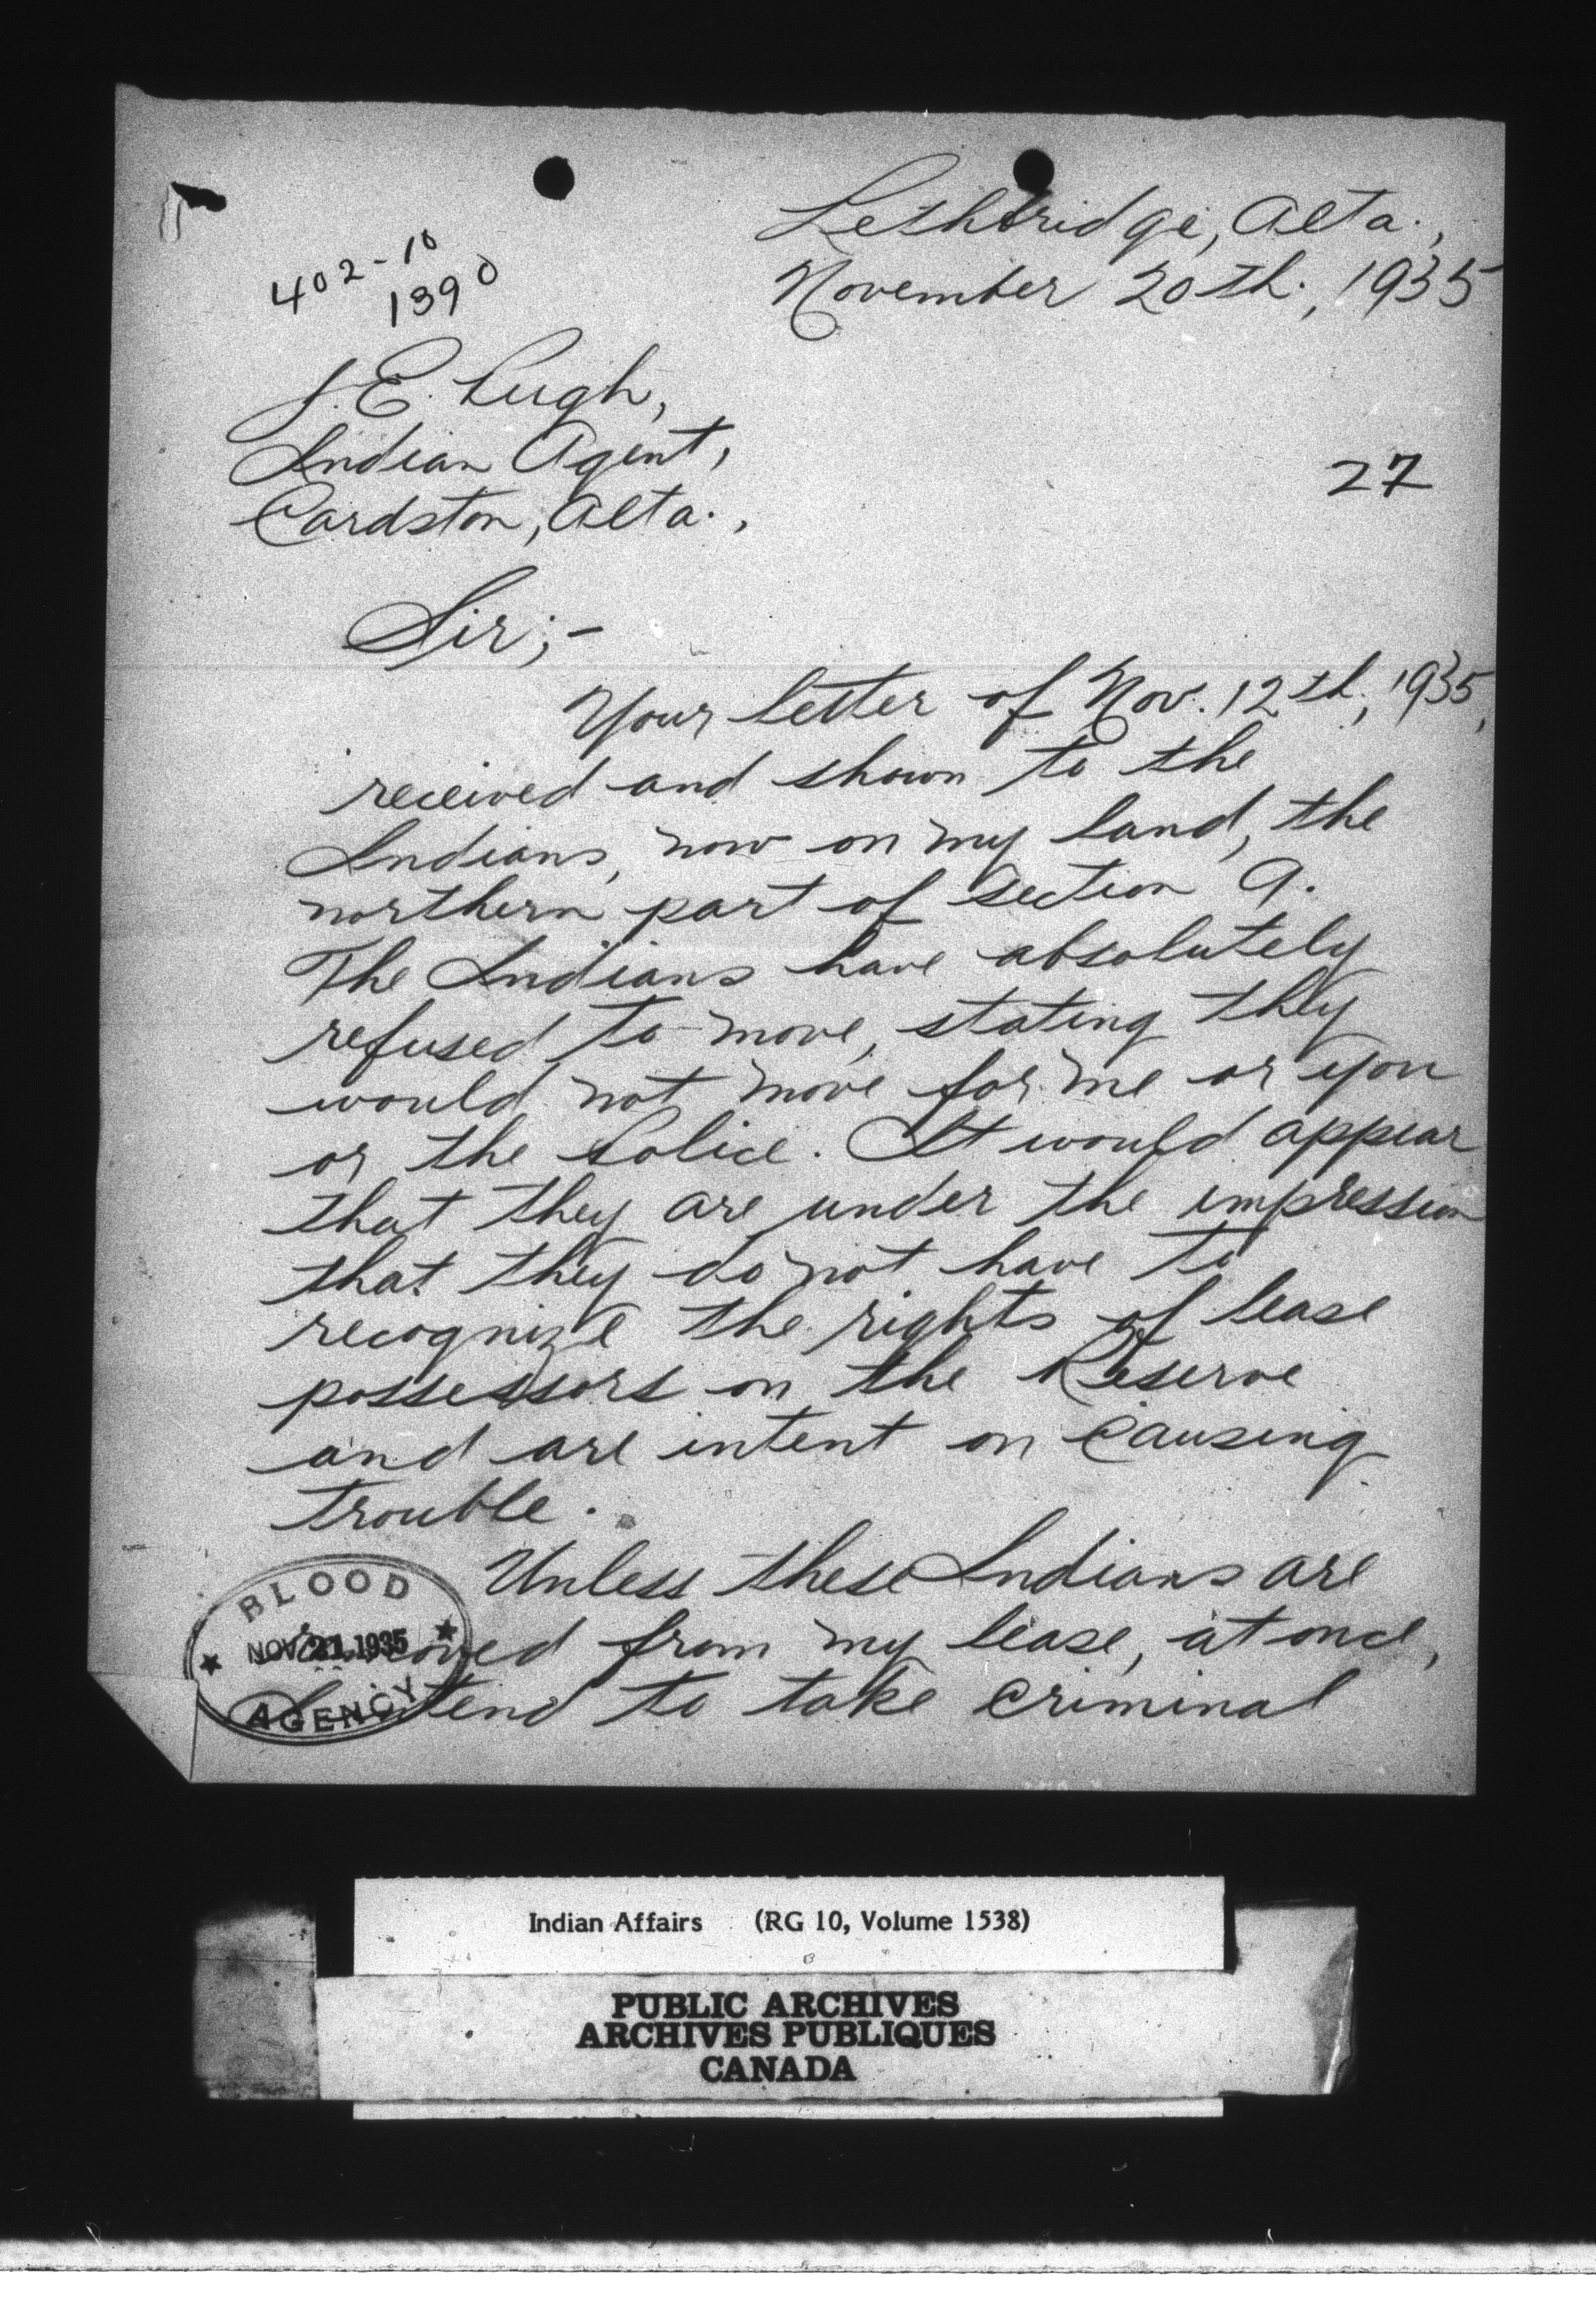 Lethbridge, Alta.,
November 20th., 1935
402-10
1390
J. E. Pugh,
Indian Agent,
Cardston, Alta.,
27
Sir;-
Your letter of Nov. 12th, 1935,
received and shown to the
Indians, now on my land, the
northern part of section 9.
The Indians have absolutely
refused to move, stating they
would not move for me or you
or the Police. It would appear
that they are under the impression
that they do not have to
recognize the rights of lease
possessors on the Reserve
and are intent on causing
trouble.
Unless these Indians are
removed from my lease, at once,
I intend to take criminal
BLOOD
NOV 21 1935
AGENCY
Indian Affairs (RG 10, Volume 1538)
PUBLIC ARCHIVES
ARCHIVES PUBLIQUES
CANADA